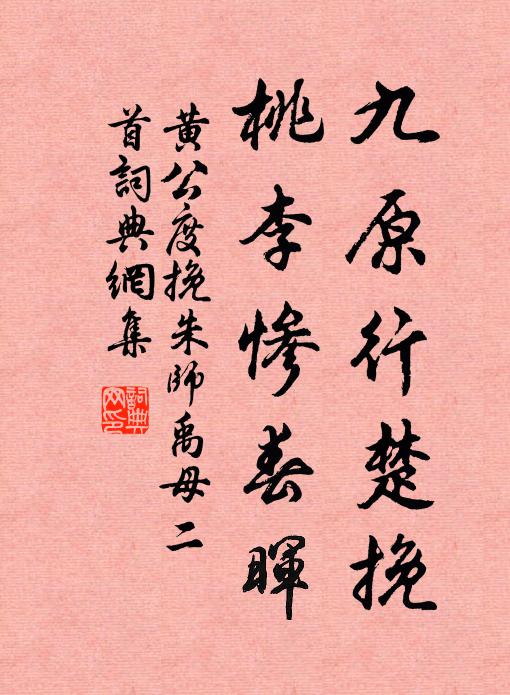 九原行楚挽
桃李惨春暉
黄公度挽朱師禹母二
首詞典網集
詞典
网印